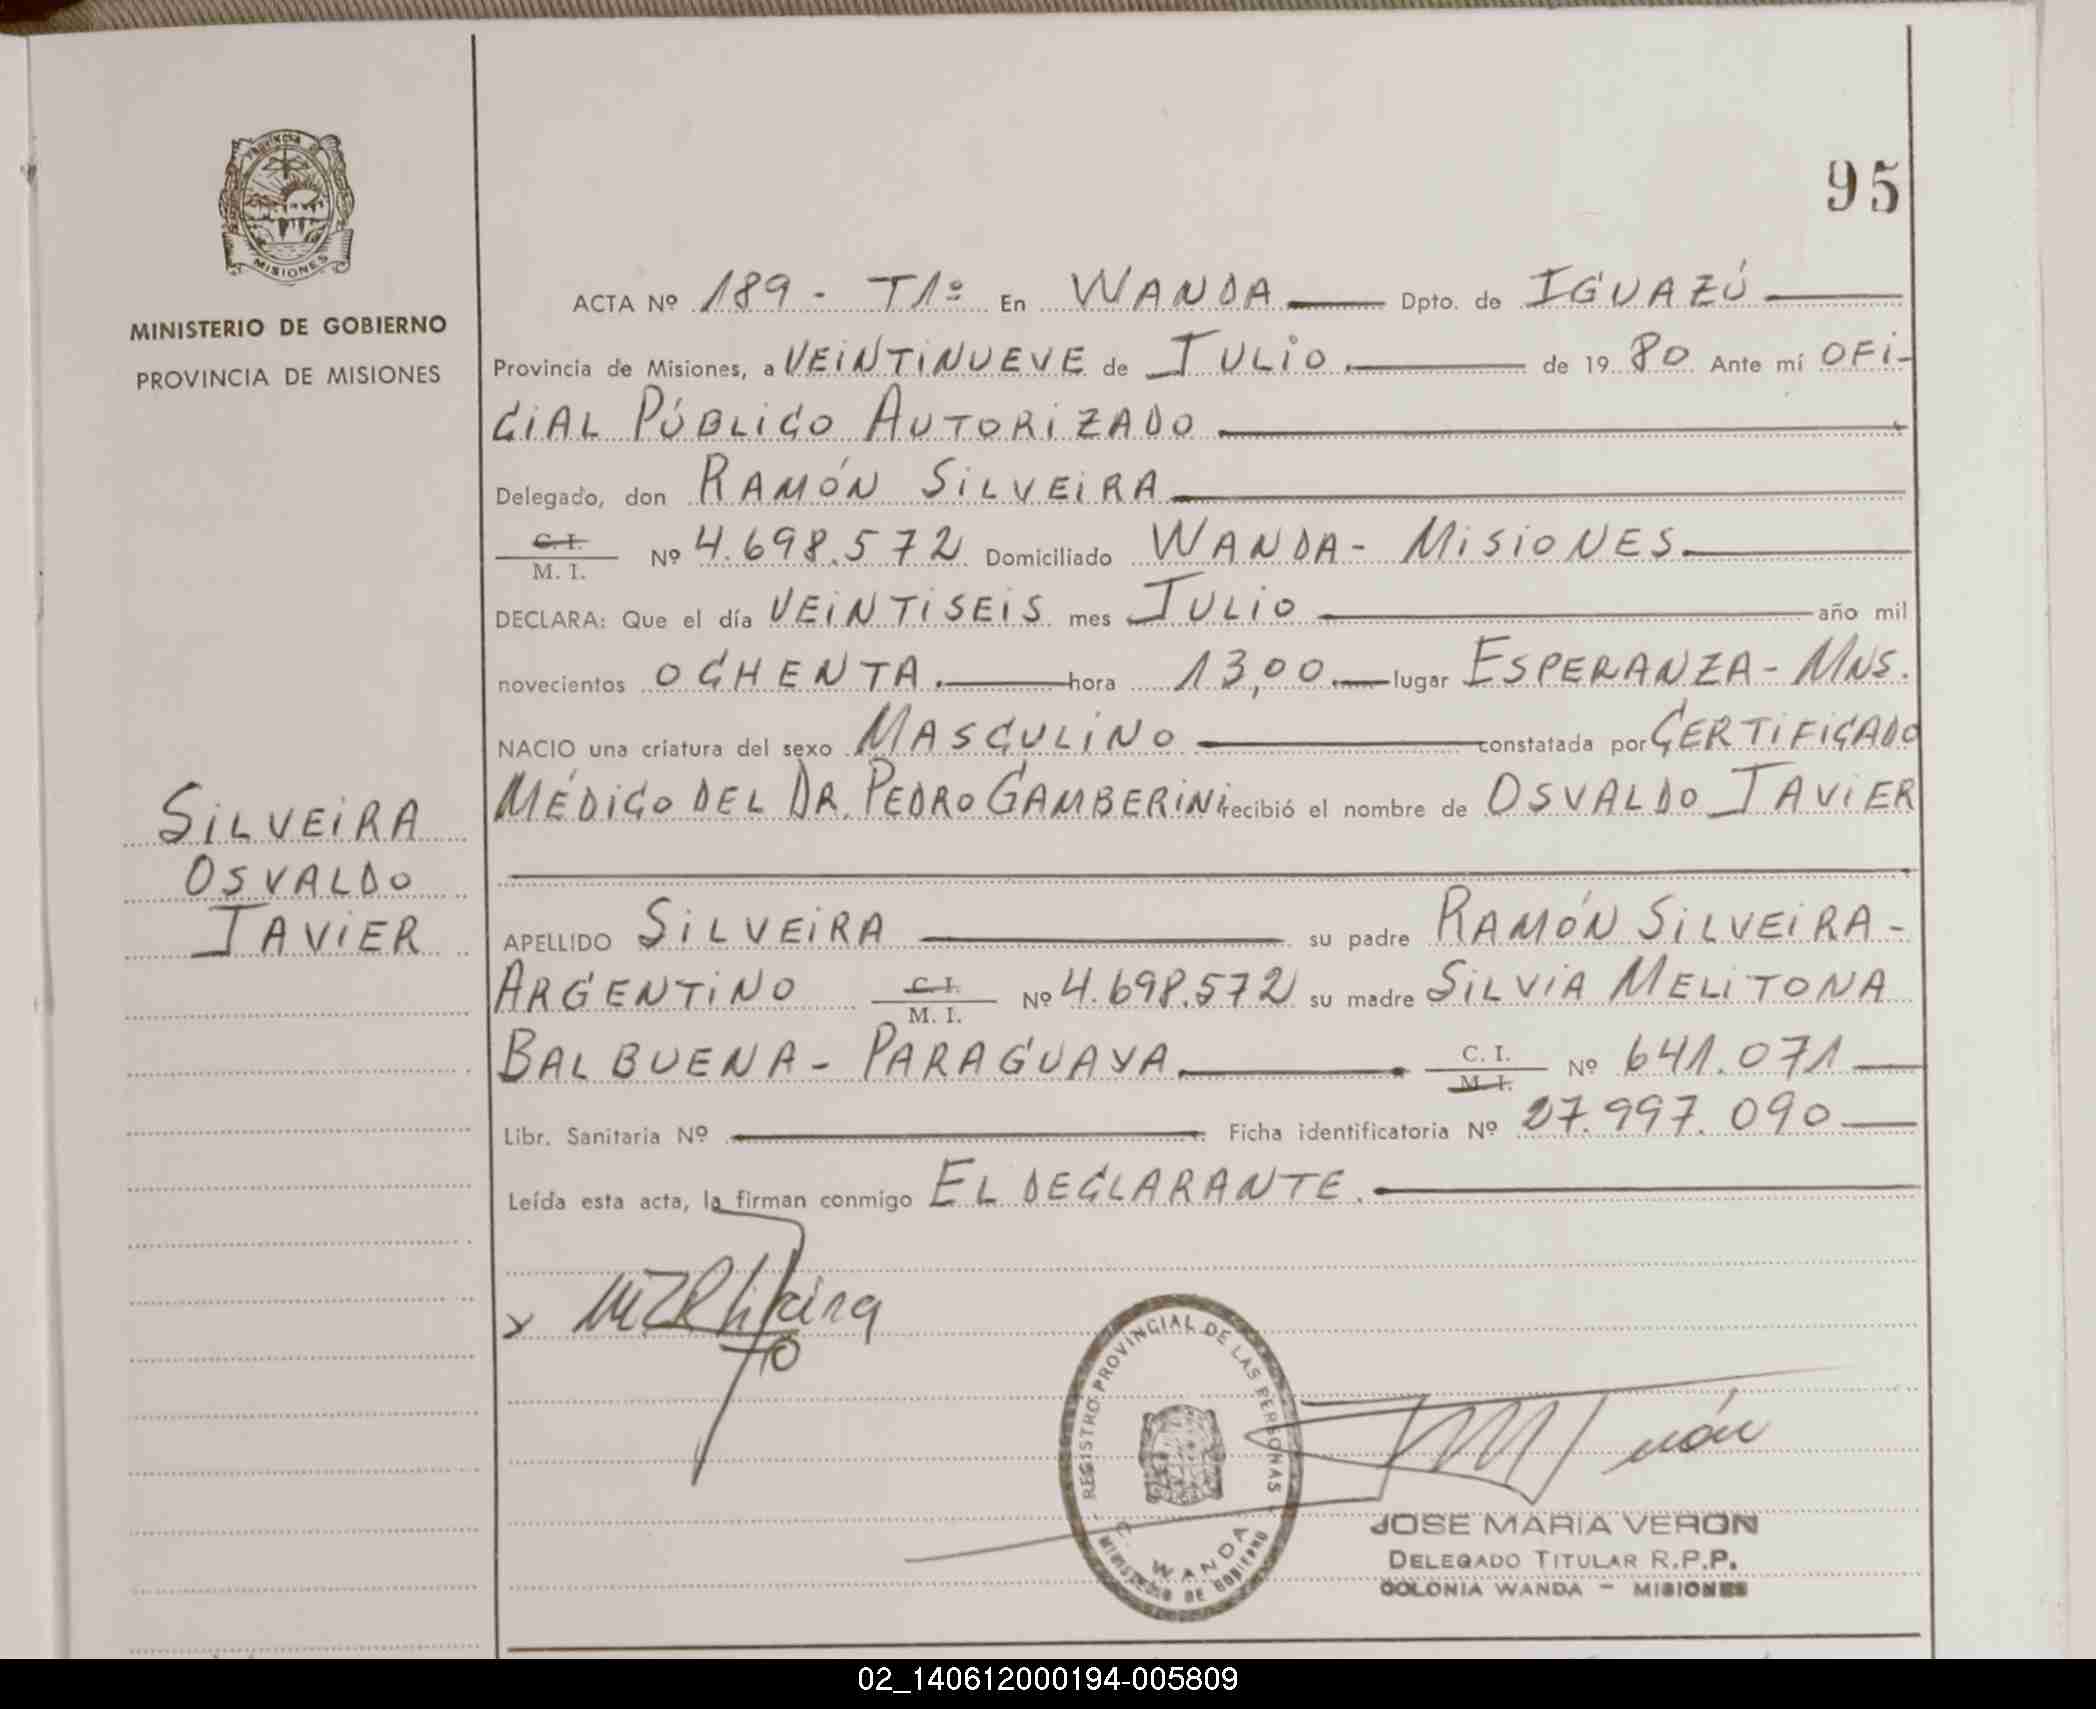 PROVINCIA DE
MISIONES
MINISTERIO DE GOBIERNO
PROVINCIA DE MISIONES
SILVEIRA
OSVALDO
JAVIER
95
ACTA Nº 189 - T1º En WANDA Dpto. de IGUAZÚ
Provincia de Misiones, a VEINTINUEVE de JULIO de 19 80 Ante mí OFI-
CIAL PÚBLICO AUTORIZADO
Delegado, don RAMÓN SILVEIRA
C. I.
M. I. Nº 4.698.572 Domiciliado WANDA - MISIONES
DECLARA: Que el día VEINTISEIS mes JULIO año mil
novecientos OCHENTA. hora 13,00 lugar ESPERANZA - MNS.
NACIO una criatura del sexo MASCULINO constatada por CERTIFICADO
MÉDICO DEL DR. PEDRO GAMBERINI recibió el nombre de OSVALDO JAVIER
APELLIDO SILVEIRA su padre RAMÓN SILVEIRA -
ARGENTINO C. I. M. I. Nº 4.698.572 su madre SILVIA MELITONA
BALBUENA - PARAGUAYA C. I. M. I. Nº 641.071
Libr. Sanitaria Nº Ficha identificatoria Nº 27.997.090
Leída esta acta, la firman conmigo EL DECLARANTE.
x
REGISTRO PROVINCIAL DE LAS PERSONAS
WANDA
MINISTERIO DE GOBIERNO
JOSE MARIA VERON
DELEGADO TITULAR R.P.P.
COLONIA WANDA - MISIONES
02_140612000194-005809